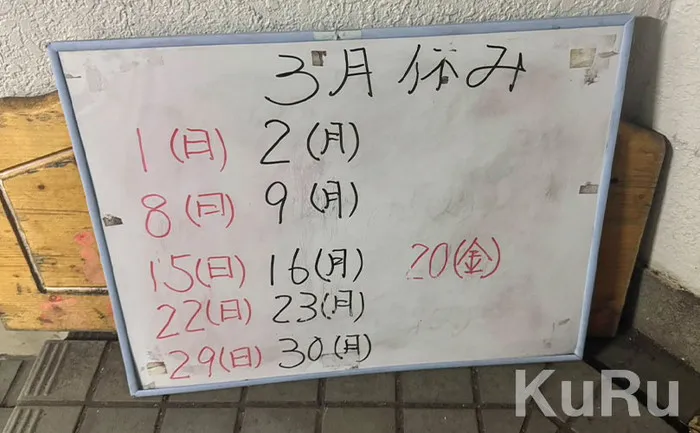 3月 休み
1(日) 2(月)
8(日) 9(月)
15(日) 16(月) 20(金)
22(日) 23(月)
29(日) 30(月)
KuRu